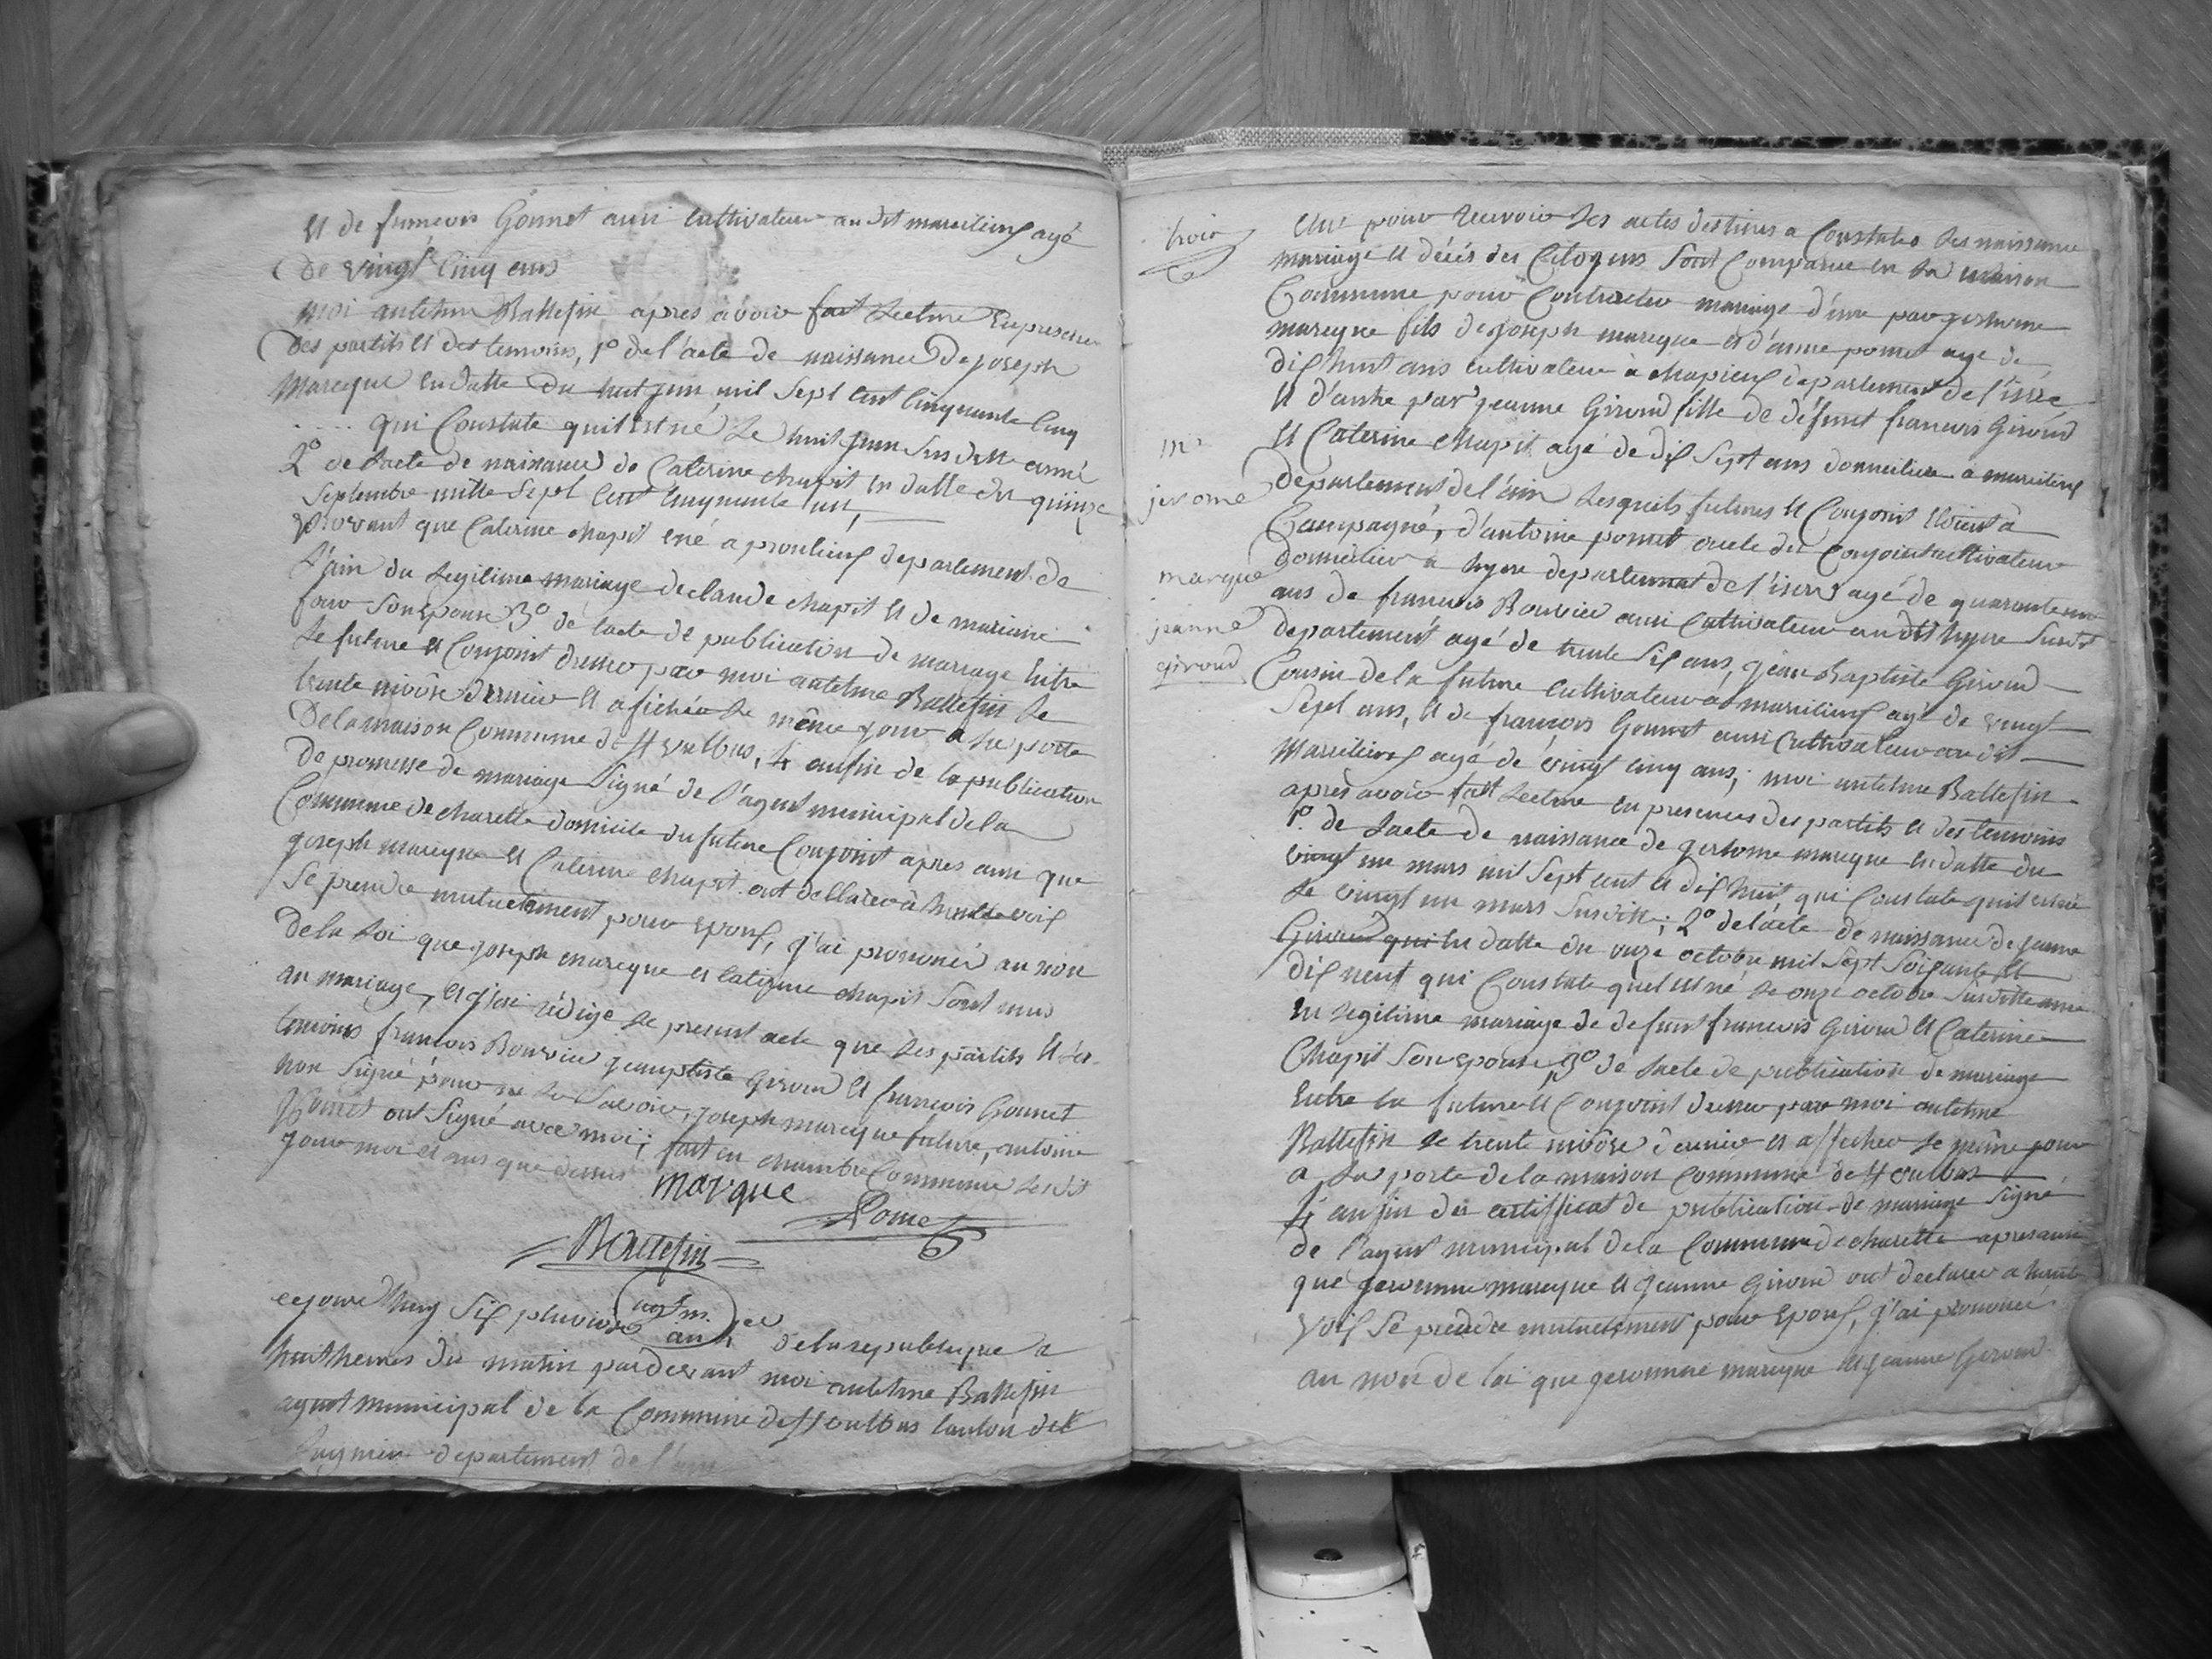 et de francois Gonnet aussi cultivateur audit marcilieux agé
de vingt cinq ans
moi antelme Ballefin apres avoir fait lecture en presence
des partits et des temoins, 1º de l'acte de naissance de joseph
Mareque en datte du huit juin mil sept cent cinquante cinq
.... qui constate quil est né le huit juin susditte anné
2º de lacte de naissance de Caterine chapit en datte du quinze
septembre mille sept cent cinquante un,
prouvant que Caterine chapit et né a departement de
l'ain du legitime mariage de claude chapit et de mariane
son epouse 3º de lacte de publication de mariage entre
le future et conjoint dressé par moi antelme Ballefin le
trente nivôse dernier et afichée le même jour a la porte
de la maison Commune de 4 enfin de la publication
de promesse de mariage signé de l'agent municipal de la
Commune de charette domicile du future conjoint apres aussi que
joseph mareque et Caterine chapit ont dellarer à haute voix
se prendre mutuelement pour epoux, j'ai prononcé au nom
de la loi que joseph mareque et caterine chapit sont unis
au mariage, et j'ai rédigé le present acte que les partits et les
temoins francois Bouvier jeanptiste Giroud et francois Gonnet
non signé pour ne le savoir, joseph mareque future, antoine
Pomet ont signé avec moi; fait en chambre Commune lesdit
jour moi et ans que dessus
marque
Pomet
Ballefin
cejourdhuy six pluviose an de la republique a
huit heures du matin pardevant moi antelme Ballefin
agent municipal de la Commune de canton de
departement de l'ain
trois
elue pour recevoir les actes destinés a constater les naissance
mariage et décès des Citoyens sont comparue en la maison
Commune pour contracter mariage d'une par gerhome
mareque fils de joseph mareque et d'anne pomet agé de
dix huit ans cultivateur à departement de l'isere
et d'autre par jeanne Giroud fille de défunt francois Giroud
mr
et Caterine chapit agé de dix sept ans domicilier a marcilieux
jerome
departement de l'ain lesquels futures et conjoint etoient a
Compagné, d'antoine pomet oncle du conjoint cultivateur
marque
domicilier a hyere departemant de l'isere agé de quarante un
ans de francois Bouvier aussi cultivateur au dit hyere susdit
jeanne
departement agé de trente six ans, jean Baptiste Giroud
giroud
Cousin de la future cultivateur a marcilieux agé de vingt
sept ans, et de francois Gonnet aussi cultivateur au dit
Marcilieux agé de vingt cinq ans; moi antelme Ballefin
après avoir fait lecture en presences des partits et des temoins
1º de lacte de naissance de gerhome mareque en datte du
vingt un mars mil sept cent et dix huit, qui constate quil est né
le vingt un mars susditte; 2º de lacte de naissance de jeanne
Giroud qui en datte du onze octobre mil sept soixante et
dix neuf qui constate quel est né le onze octobre susditte anné
en legitime mariage de defunt francois Giroud et Caterine
Chapit son epouse 3º de lacte de publication de mariage
entre la future et conjoint dressé par moi antelme
Ballefin le trente nivôse dernier et afficher le même jour
a la porte de la maison Commune de
4 enfin du certifficat de publication de mariage signé
de l'agent municipal de la Commune de charette apres aussi
que geromme mareque et jeanne Giroud ont declarer a haute
voix se prendre mutuelement pour epoux, j'ai prononcé
au nom de loi que geromme mareque et jeanne Giroud